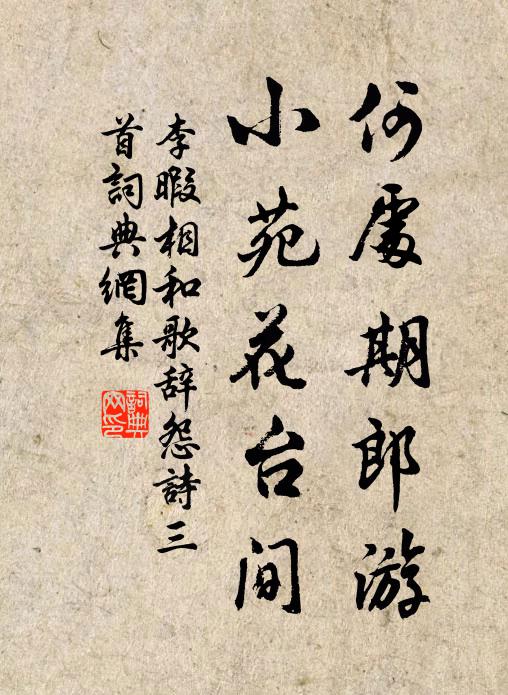 何處期郎游
小苑花台间
李暇相和歌辞怨詩三
首詞典網集
詞典
网印